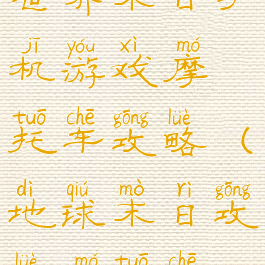 jī yóu xì mó
机游戏摩
tuō chē gōng lüè
托车攻略(
dì qiú mò rì gōng
地球末日攻
lüè mó tuō chē